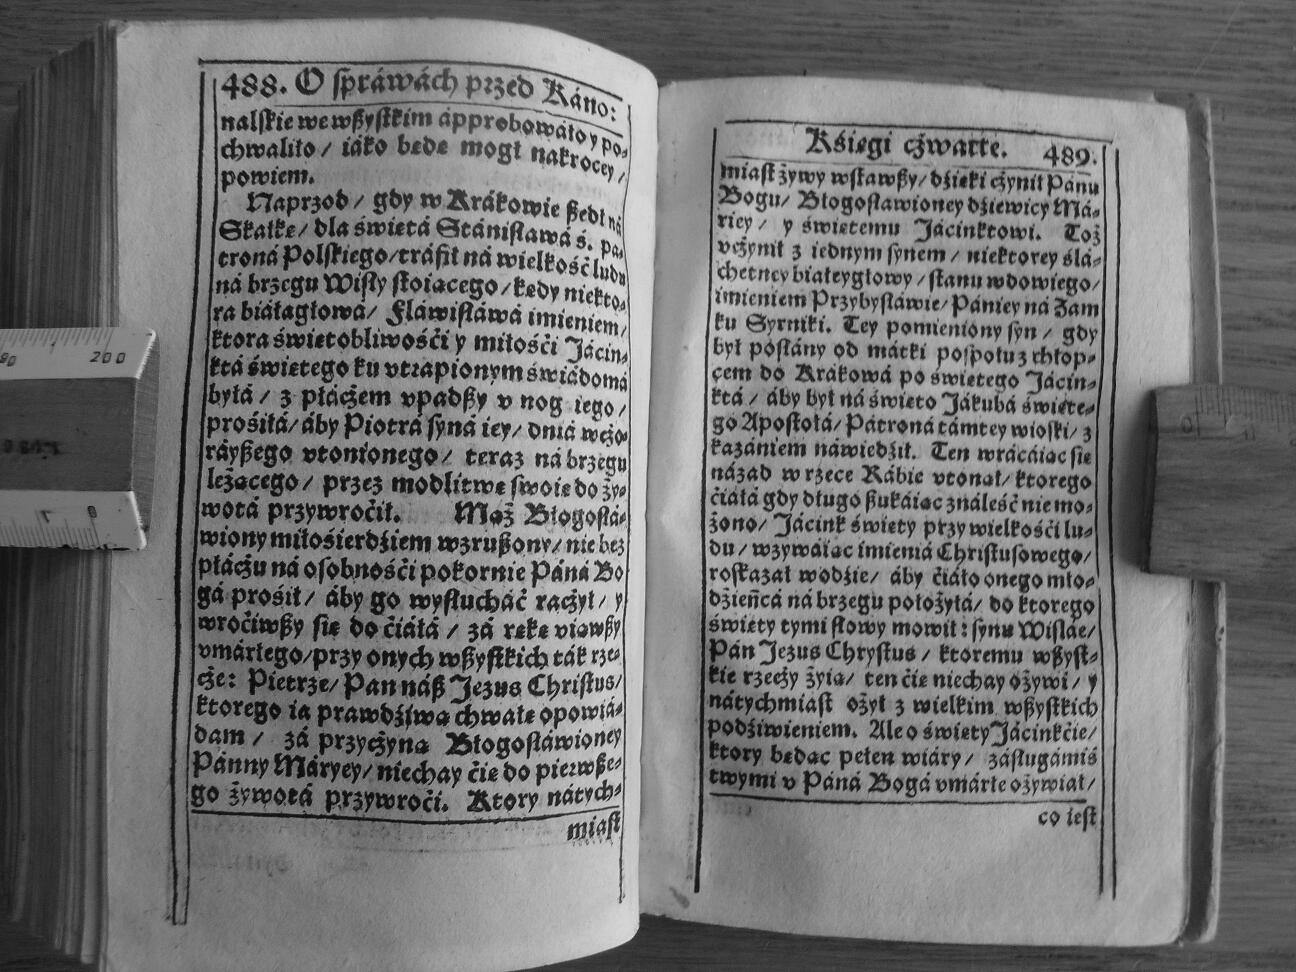 488. O spráwách przed Káno:
nalskie we wßystkim ápprobowáło y po-
chwaliło / iáko bede mogł nakrocey /
powiem.
Naprzod / gdy w Krákowie ßedł ná
Skałke / dla świętá Stánisłáwá ś. pa-
troná Polskiego / tráfił ná wielkość ludu
ná brzegu Wisły stoiącego / kędy niekto-
ra białagłowá / Flawisławá imieniem /
ktora świetobliwości y miłości Jácin-
ktá świetego ku vtrapionym świádomá
byłá / z płáczem vpadßy v nog iego /
prosiłá / áby Piotrá syná iey / dniá wczo-
ráyßego vtonionego / teraz ná brzegu
leżącego / przez modlitwe swoie do ży-
wotá przywroćił. Mąż Błogosłá-
wiony miłosierdźiem wzrußony / nie bez
płáczu ná osobnośći pokornie Páná Bo
gá prośił / áby go wysłucháć raczył / y
wroćiwßy się do ćiáłá / zá reke viąwßy
vmárłego / przy onych wßystkich ták rze-
cze: Pietrze / Pan náß Jezus Christus /
ktorego ia prawdźiwą chwałe opowiá-
dam / zá przyczyną Błogosłáwioney
Pánny Máryey / niechay ćie do pierwße-
go żywotá przywroći. Ktory nátych-
miast
Kśięgi czwarte. 489.
miast żywy wstawßy / dźięki czynił Pánu
Bogu / Błogosławioney dźiewicy Má-
riey / y świetemu Jácinktowi. Toż
vczynił z iednym synem / niektorey ślá-
chetney białeygłowy / stanu wdowiego /
imieniem Przybysławie / Pániey ná Zam
ku Syrniki. Tey pomieniony syn / gdy
był posłány od mátki pospołu z chłop-
cem do Krákowá po świetego Jácin-
ktá / áby był ná świeto Jákubá świete-
go Apostołá / Pátroná támtey wioski / z
kazániem náwiedźił. Ten wrácáiąc się
názad w rzece Rábie vtonął / ktorego
ćiáłá gdy długo ßukáiąc ználeść nie mo-
żono / Jácinkt świety przy wielkośći lu-
du / wzywáiąc imieniá Christusowego /
roskazał wodźie / áby ćiáło onego mło-
dźieńcá ná brzegu położyłá / do ktorego
świety tymi słowy mowił: synu Wisláe /
Pan Jezus Chrystus / ktoremu wßyst-
kie rzeczy żyią / ten ćie niechay ożywi / y
nátychmiast ożył z wielkim wßystkich
podźiwieniem. Ale o świety Jácinkćie /
ktory będąc pełen wiáry / zásługámi
twymi v Páná Bogá vmárłe ożywiał /
co iest
200
0